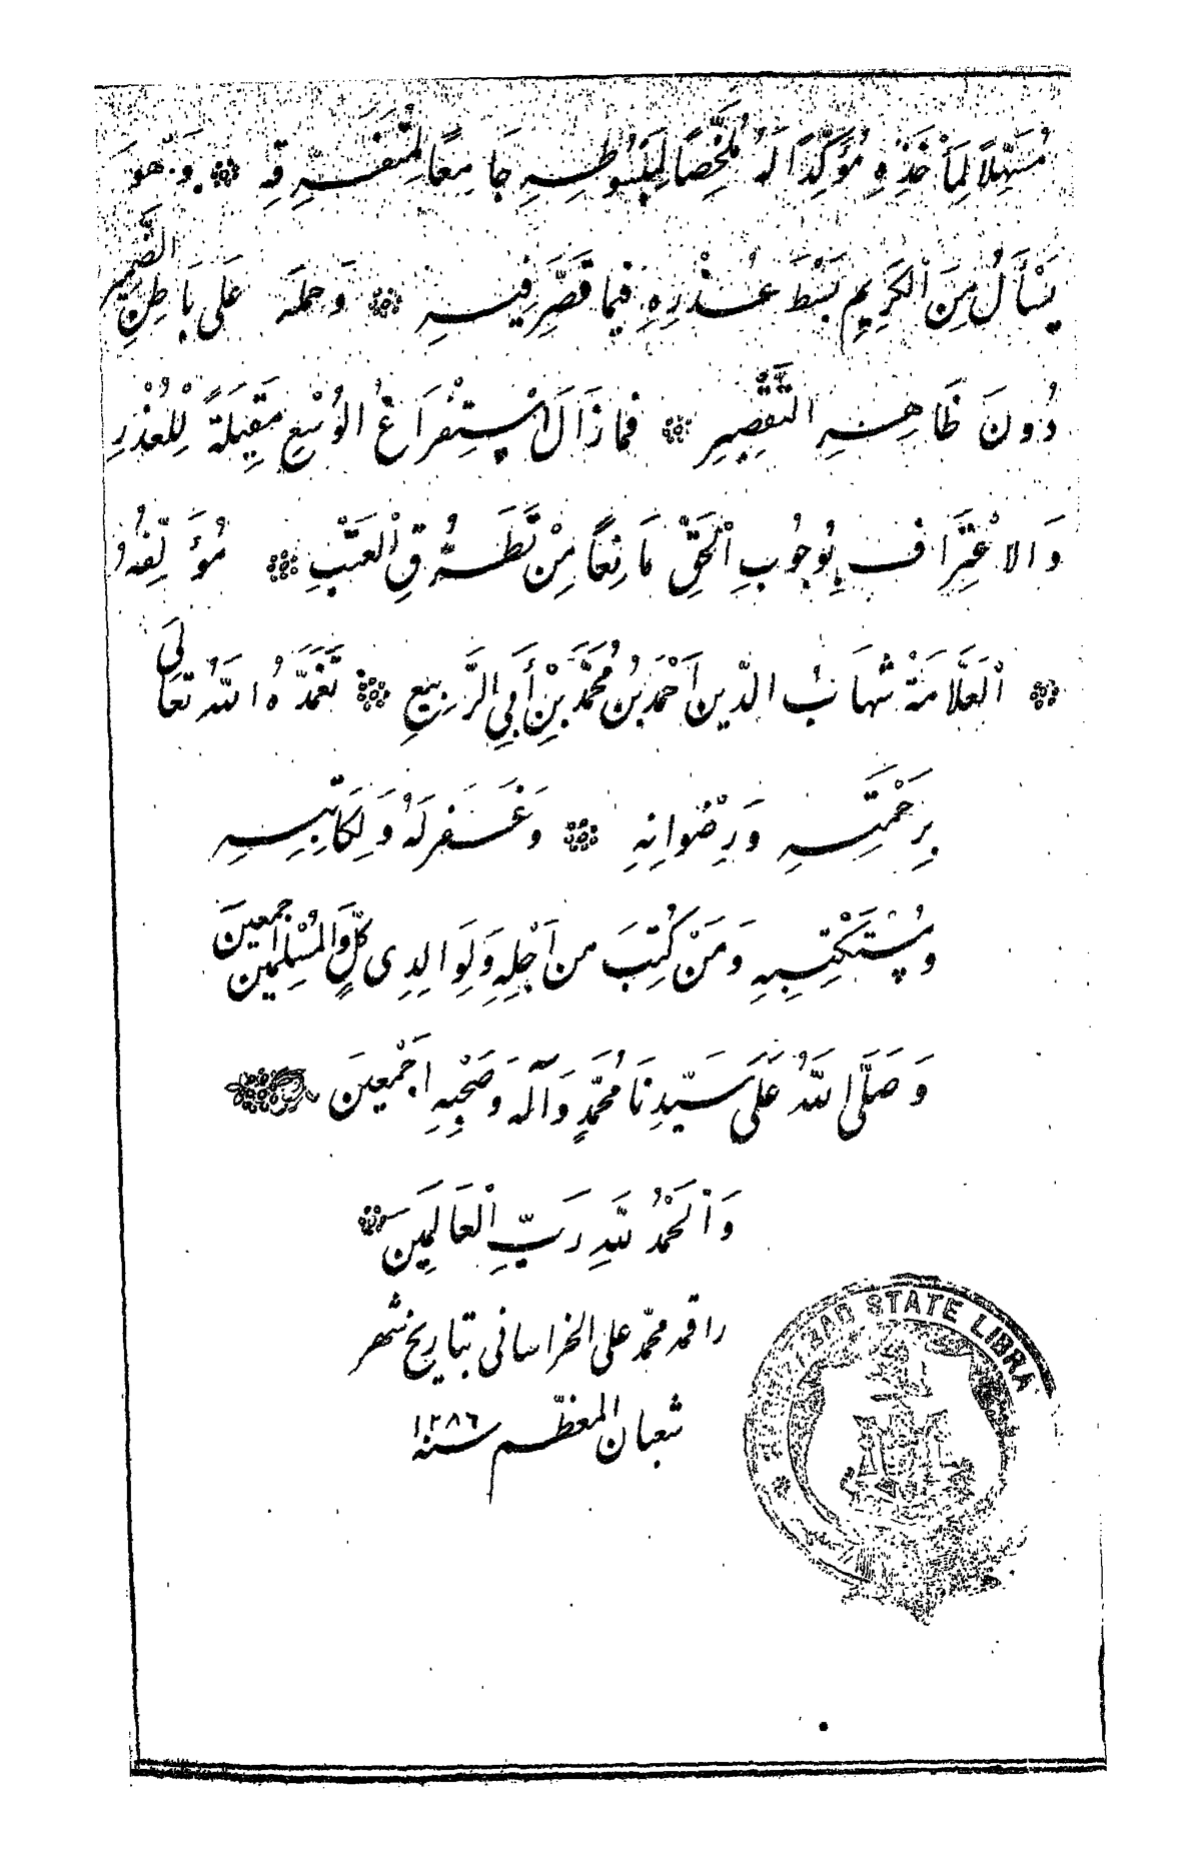 مُسَهِّلًا لِمَأْخَذِهِ مُؤَكِّدًا لَهُ مُلَخِّصًا لِمَبْسُوطِهِ جَامِعًا لِمُتَفَرِّقِهِ ۞ وَهُوَ
يَسْأَلُ مِنَ الْكَرِيمِ بَسْطَ عُذْرِهِ فِيمَا قَصَّرَ فِيهِ ۞ وَحَمْلَهُ عَلَى بَاطِنِ الضَّمِيرِ
دُونَ ظَاهِرِ التَّقْصِيرِ ۞ فَمَا زَالَ اسْتِفْرَاغُ الْوُسْعِ مُقِيلَةً لِلْعُذْرِ
وَالاعْتِرَافُ بِوُجُوبِ الْحَقِّ مَانِعًا مِنْ تَطَرُّقِ الْعَتْبِ ۞ مُؤَلِّفُهُ
۞ اَلْعَلَّامَةُ شِهَابُ الدِّينِ اَحْمَدُ بْنُ مُحَمَّدِ بْنِ أَبِي الرَّبِيعِ ۞ تَغَمَّدَهُ اللَّهُ تَعَالَى
بِرَحْمَتِهِ وَرِضْوَانِهِ ۞ وَغَفَرَ لَهُ وَلِكَاتِبِهِ
وَمُسْتَكْتِبِهِ وَمَنْ كُتِبَ مِنْ اَجْلِهِ وَلِوَالِدِي كُلٍّ وَالْمُسْلِمِينَ اَجْمَعِينَ
وَصَلَّى اللَّهُ عَلَى سَيِّدِنَا مُحَمَّدٍ وَآلِهِ وَصَحْبِهِ اَجْمَعِينَ
وَالْحَمْدُ لِلَّهِ رَبِّ الْعَالَمِينَ ۞
راقمه محمّد على الخراسانى بتاريخ شهر
شعبان المعظّم سنه ۱۲۸۶
STATE LIBRA